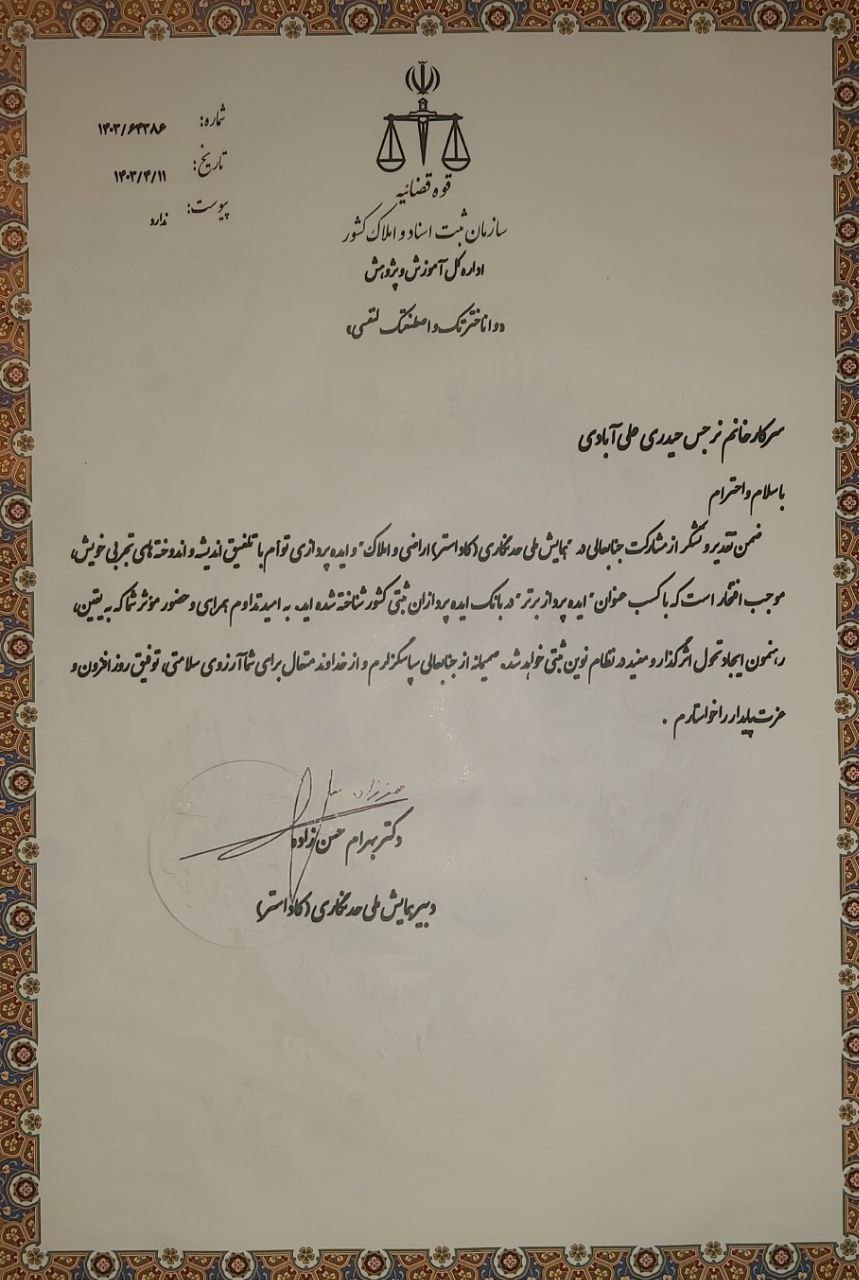 شماره: ۱۴۰۳/۶۴۳۸۶
تاریخ: ۱۴۰۳/۴/۱۱
پیوست: ندارد
قوه قضائیه
سازمان ثبت اسناد و املاک کشور
اداره کل آموزش و پژوهش
«و انا اخترتک و اصطنعتک لنفسی»
سرکار خانم نرجس حیدری علی آبادی
با سلام و احترام
ضمن تقدیر و تشکر از مشارکت جنابعالی در "همایش ملی حدنگاری (کاداستر) اراضی و املاک" و ایده پردازی توأم با تلفیق اندیشه و اندوخته های تجربی خویش،
موجب افتخار است که با کسب عنوان "ایده پرداز برتر" در بانک ایده پردازان ثبتی کشور شناخته شده اید. به امید تداوم همراهی و حضور مؤثر شما که به یقین،
رهنمون ایجاد تحول اثرگذار و مفید در نظام نوین ثبتی خواهد شد. صمیمانه از جنابعالی سپاسگزارم و از خداوند متعال برای شما آرزوی سلامتی، توفیق روز افزون و
عزت پایدار را خواستارم .
دکتر بهرام حسن زاده
دبیر همایش ملی حدنگاری (کاداستر)